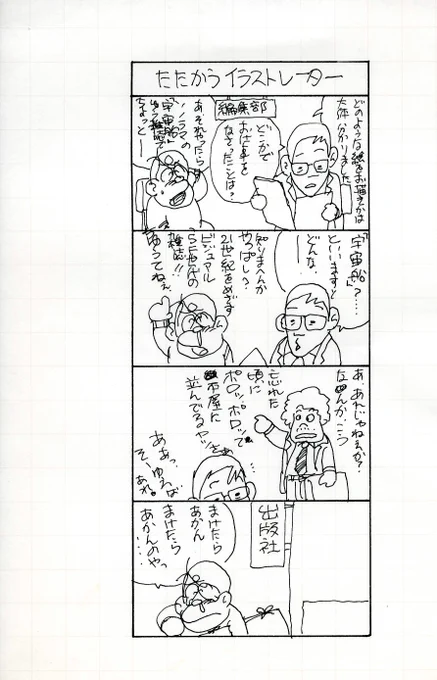 たたかうイラストレーター
どのような絵をお描きかは
大体分かりました
編集部
どこかで
お仕事を
なさったことは?
あ、それやったら
ソノラマの
「宇宙船」
ちょっと
「宇宙船」?……
といいますと
どんな…
知りまへんか
やっぱし?
21世紀をめざす
ビジュアル
SF世代の
雑誌!!
ゆうてねぇ
あ、あれじゃねぇか?
なんかこう
忘れた
頃に
ポロッ、ポロッて
本屋に
並んでるヤツ
ああっ
そーゆえば
あれ。
出版社
まけたら
あかん
まけたら
あかんのやっ
……